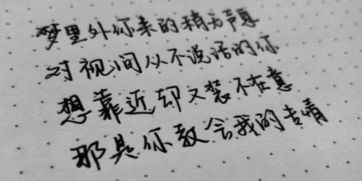 梦里外你来的稍无声息
对视间从不说话的你
想靠近却又装不在意
那是你教会我的专情